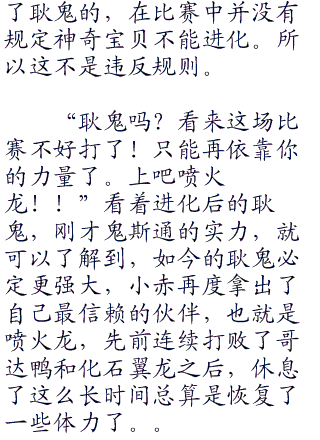 了耿鬼的，在比赛中并没有
规定神奇宝贝不能进化。所
以这不是违反规则。
“耿鬼吗？看来这场比
赛不好打了！只能再依靠你
的力量了。上吧喷火
龙！！”看着进化后的耿
鬼，刚才鬼斯通的实力，就
可以了解到，如今的耿鬼必
定更强大，小赤再度拿出了
自己最信赖的伙伴，也就是
喷火龙，先前连续打败了哥
达鸭和化石翼龙之后，休息
了这么长时间总算是恢复了
一些体力了。。